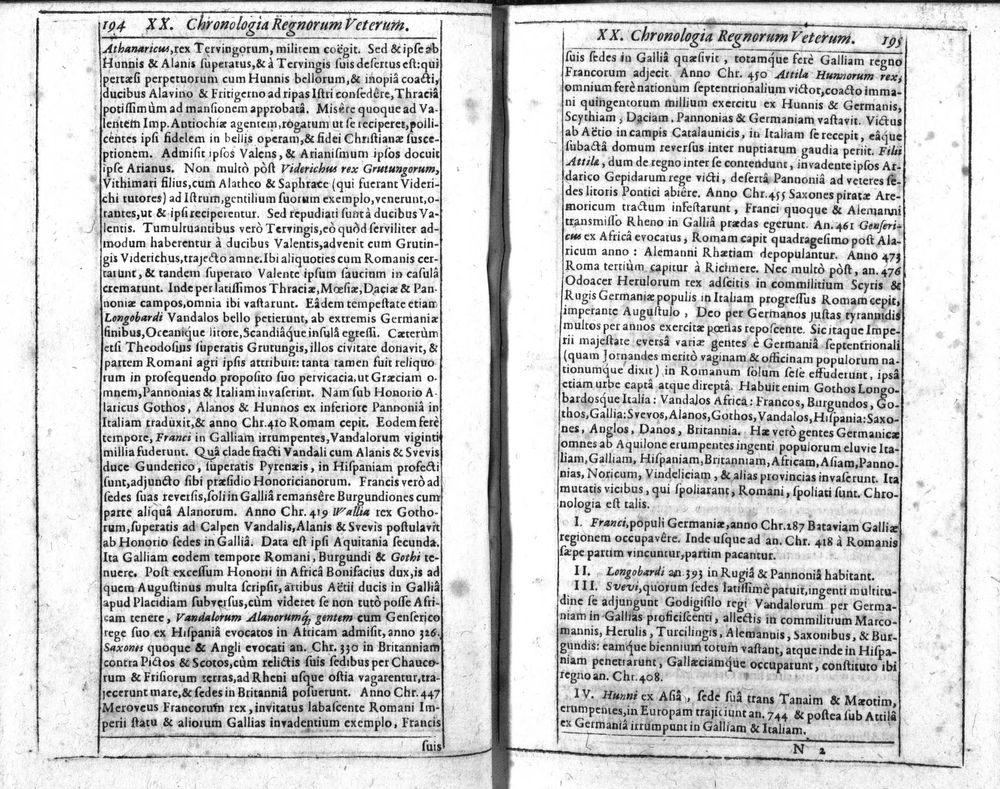 194 XX. Chronologia Regnorum Veterum.
Athanaricus, rex Tervingorum, militem coëgit. Sed & ipse ab
Hunnis & Alanis superatus, & à Tervingis suis desertus est: qui
pertæsi perpetuorum cum Hunnis bellorum, & inopiâ coacti,
ducibus Alavino & Fritigerno ad ripas Istri consedêre, Thraciâ
potissimùm ad mansionem approbatâ. Misêre quoque ad Va-
lentem Imp. Antiochiæ agentem, rogatum ut se reciperet, polli-
centes ipsi fidelem in bellis operam, & fidei Christianæ susce-
ptionem. Admisit ipsos Valens, & Arianismum ipsos docuit
ipse Arianus. Non multò pòst Viderichus rex Grutungorum,
Vithimari filius, cum Alatheo & Saphrace (qui fuerant Videri-
chi tutores) ad Istrum, gentilium suorum exemplo, venerunt, o-
rantes, ut & ipsi reciperentur. Sed repudiati sunt à ducibus Va-
lentis. Tumultuantibus verò Tervingis, eò quòd serviliter ad-
modum haberentur à ducibus Valentis, advenit cum Grutin-
gis Viderichus, trajecto amne. Ibi aliquoties cum Romanis cer-
tarunt, & tandem superato Valente ipsum saucium in casulâ
cremarunt. Inde per latissimos Thraciæ, Mœsiæ, Daciæ & Pan-
noniæ campos, omnia ibi vastarunt. Eâdem tempestate etiam
Longobardi Vandalos bello petierunt, ab extremis Germaniæ
finibus, Oceanique litore, Scandiâque insulâ egressi. Cæterùm
etsi Theodosius superatis Grutungis, illos civitate donavit, &
partem Romani agri ipsis attribuit: tanta tamen fuit reliquo-
rum in prosequendo proposito suo pervicacia, ut Græciam o-
mnem, Pannonias & Italiam invaserint. Nam sub Honorio A-
laricus Gothos, Alanos & Hunnos ex inferiore Pannonia in
Italiam traduxit, & anno Chr. 410 Romam cepit. Eodem ferè
tempore, Franci in Galliam irrumpentes, Vandalorum viginti
millia fuderunt. Quâ clade fracti Vandali cum Alanis & Svevis
duce Gunderico, superatis Pyrenæis, in Hispaniam profecti
sunt, adjuncto sibi præsidio Honoricianorum. Francis verò ad
sedes suas reversis, soli in Galliâ remansêre Burgundiones cum
parte aliquâ Alanorum. Anno Chr. 419 Wallia rex Gotho-
rum, superatis ad Calpen Vandalis, Alanis & Svevis postulavit
ab Honorio sedes in Galliâ. Data est ipsi Aquitania secunda.
Ita Galliam eodem tempore Romani, Burgundi & Gothi te-
nuere. Post excessum Honorii in Africâ Bonifacius dux, is ad
quem Augustinus multa scripsit, artibus Aëtii ducis in Galliâ
apud Placidiam subversus, cùm videret se non tutò posse Afri-
cam tenere, Vandalorum Alanorumq; gentem cum Genserico
rege suo ex Hispaniâ evocatos in Africam admisit, anno 326.
Saxones quoque & Angli evocati an. Chr. 330 in Britanniam
contra Pictos & Scotos, cùm relictis suis sedibus per Chauco-
rum & Frisiorum terras, ad Rheni usque ostia vagarentur, tra-
jecerunt mare, & sedes in Britanniâ posuerunt. Anno Chr. 447
Meroveus Francorum rex, invitatus labascente Romani Im-
perii statu & aliorum Gallias invadentium exemplo, Francis
suis
XX. Chronologia Regnorum Veterum. 195
suis sedes in Galliâ quæsivit, totamque ferè Galliam regno
Francorum adjecit. Anno Chr. 450 Attila Hunnorum rex,
omnium ferè nationum septentrionalium victor, coacto imma-
ni quingentorum millium exercitu ex Hunnis & Germanis,
Scythiam, Daciam, Pannonias & Germaniam vastavit. Victus
ab Aëtio in campis Catalaunicis, in Italiam se recepit, eâque
subactâ domum reversus inter nuptiarum gaudia periit. Filii
Attilæ, dum de regno inter se contendunt, invadente ipsos Ar-
darico Gepidarum rege victi, desertâ Pannoniâ ad veteres se-
des litoris Pontici abiêre. Anno Chr. 455 Saxones piratæ Are-
moricum tractum infestarunt, Franci quoque & Alemanni
transmisso Rheno in Galliâ prædas egerunt. An. 461 Genseri-
cus ex Africâ evocatus, Romam capit quadragesimo post Ala-
ricum anno: Alemanni Rhætiam depopulantur. Anno 473
Roma tertiùm capitur à Ricimere. Nec multò pòst, an. 476
Odoacer Herulorum rex adscitis in commilitium Scyris &
Rugis Germaniæ populis in Italiam progressus Romam cepit,
imperante Augustulo, Deo per Germanos justas tyrannidis
multos per annos exercitæ pœnas reposcente. Sic itaque Impe-
rii majestate eversâ variæ gentes è Germaniâ septentrionali
(quam Jornandes meritò vaginam & officinam populorum na-
tionumque dixit) in Romanum solum sese effuderunt, ipsâ
etiam urbe captâ atque direptâ. Habuit enim Gothos Longo-
bardosque Italia: Vandalos Africa: Francos, Burgundos, Go-
thos, Gallia: Svevos, Alanos, Gothos, Vandalos, Hispania: Saxo-
nes, Anglos, Danos, Britannia. Hæ verò gentes Germanicæ
omnes ab Aquilone erumpentes ingenti populorum eluvie Ita-
liam, Galliam, Hispaniam, Britanniam, Africam, Asiam, Panno-
nias, Noricum, Vindeliciam, & alias provincias invaserunt. Ita
mutatis vicibus, qui spoliarant, Romani, spoliati sunt. Chro-
nologia est talis.
I. Franci, populi Germaniæ, anno Chr. 287 Bataviam Galliæ
regionem occupavêre. Inde usque ad an. Chr. 418 à Romanis
sæpe partim vincuntur, partim pacantur.
II. Longobardi an. 393 in Rugiâ & Pannoniâ habitant.
III. Svevi, quorum sedes latissimè patuit, ingenti multitu-
dine se adjungunt Godigisilo regi Vandalorum per Germa-
niam in Gallias proficiscenti, allectis in commilitium Marco-
mannis, Herulis, Turcilingis, Alemannis, Saxonibus, & Bur-
gundis: eamque biennium totum vastant, atque inde in Hispa-
niam penetrarunt, Gallæciamque occupatunt, constituto ibi
regno an. Chr. 408.
IV. Hunni ex Asiâ, sede suâ trans Tanaim & Mæotim,
erumpentes, in Europam trajiciunt an. 744 & postea sub Attilâ
ex Germaniâ irrumpunt in Galliam & Italiam.
N 2